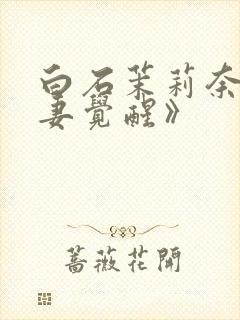 白石茉莉奈
妻覺醒》
薔薇花開